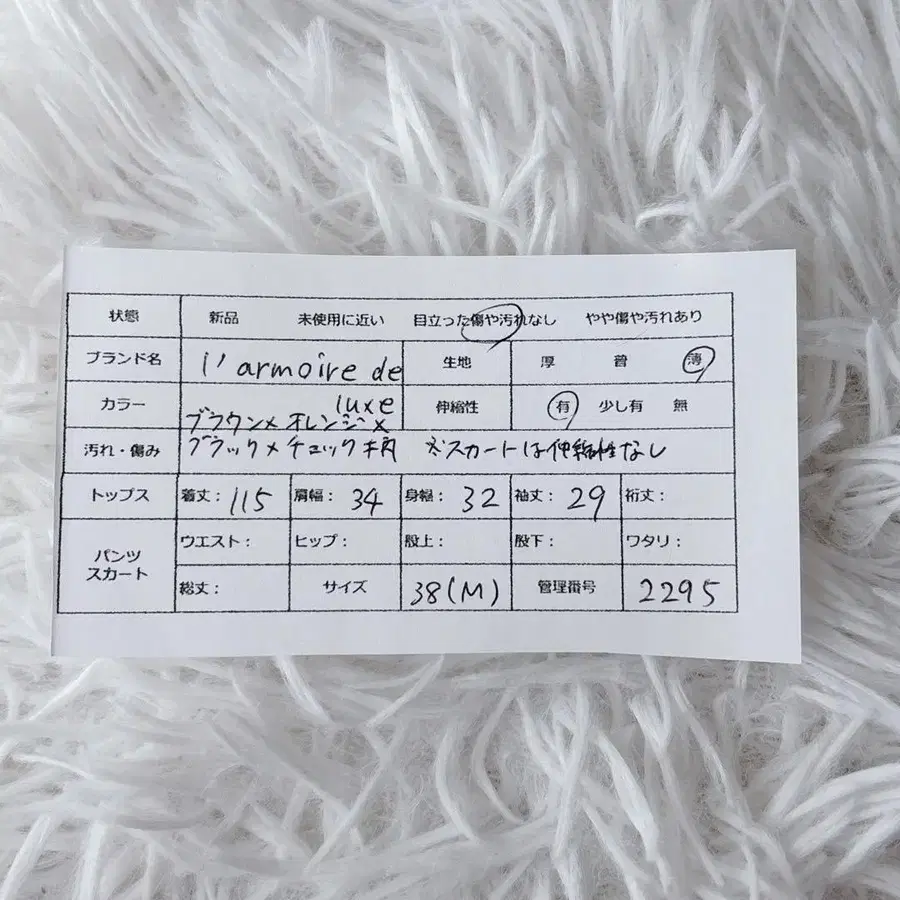 状態 新品 未使用に近い 目立った傷や汚れなし やや傷や汚れあり
ブランド名 l'armoire de luxe 生地 厚 普 薄
カラー ブラウン×オレンジ× 伸縮性 有 少し有 無
汚れ・傷み ブラック×チェック柄 ※スカートは伸縮性なし
トップス 着丈：115 肩幅：34 身幅：32 袖丈：29 裄丈：
パンツ スカート ウエスト： ヒップ： 股上： 股下： ワタリ：
総丈： サイズ 38(M) 管理番号 2295